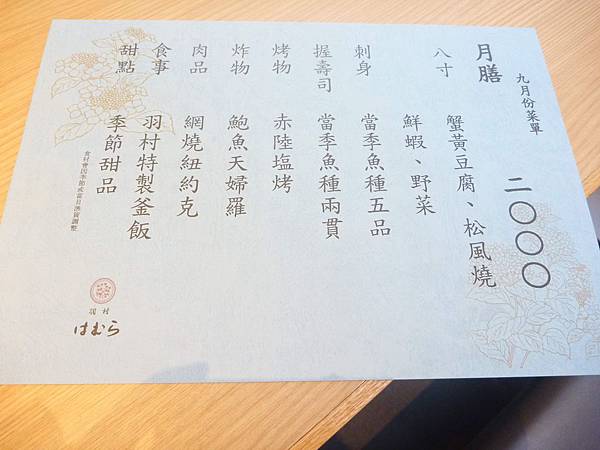 九月份菜單
月膳 二〇〇〇
八寸 蟹黃豆腐、松風燒
鮮蝦、野菜
刺身 當季魚種五品
握壽司 當季魚種兩貫
烤物 赤陸塩烤
炸物 鮑魚天婦羅
肉品 網燒紐約克
食事 羽村特製釜飯
甜點 季節甜品
食材會因季節或當日漁貨調整
羽村
はむら